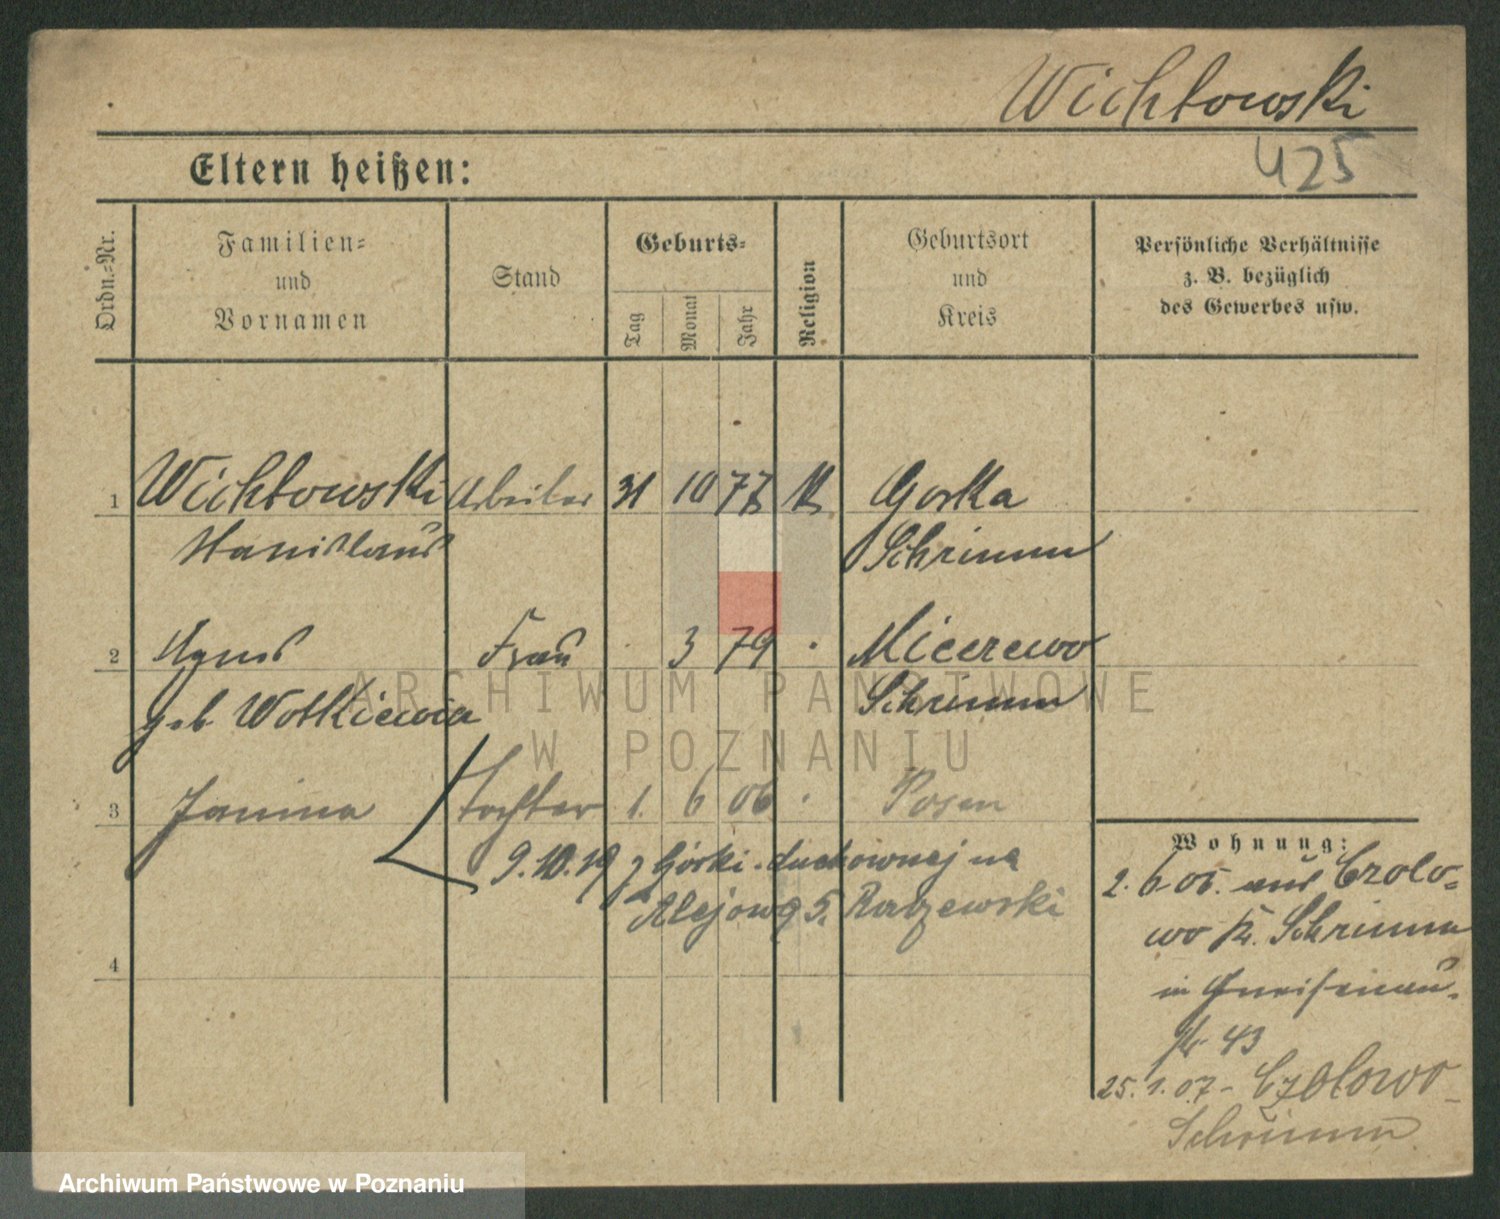 Wichtowski
425
Eltern heißen:
Ordn.-Nr.
Familien-
und
Vornamen
Stand
Geburts-
Tag
Monat
Jahr
Religion
Geburtsort
und
Kreis
Persönliche Verhältnisse
z. B. bezüglich
des Gewerbes usw.
1 Wichtowski Arbeiter 31 10 77 K Gorka
Stanislaus Schrimm
2 Agnes Frau 3 79 Schrimm
geb.
3 Janina Tochter 1. 6 06 Posen
9.10.19 z Górki duchownej na
Alejową 5.
4
Wohnung:
2. 6 05. aus Czolo-
wo Kr. Schrimm
in Gneisenau-
str 43
25. 1. 07 - Czolowo -
Schrimm
ARCHIWUM PAŃSTWOWE
W POZNANIU
Archiwum Państwowe w Poznaniu